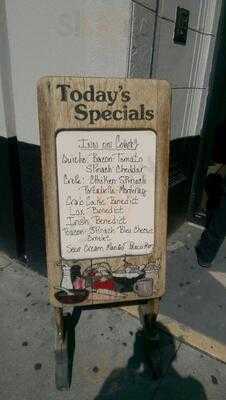 Today's
Specials
Quiche: Bacon Tomato
Spinach Cheddar
Crepe: Chicken Spinach
Portabella-Monterey
Crab Cake Benedict
Lox Benedict
Irish Benedict
Bacon Spinach Bleu Cheese
Omelet
Sour Cream